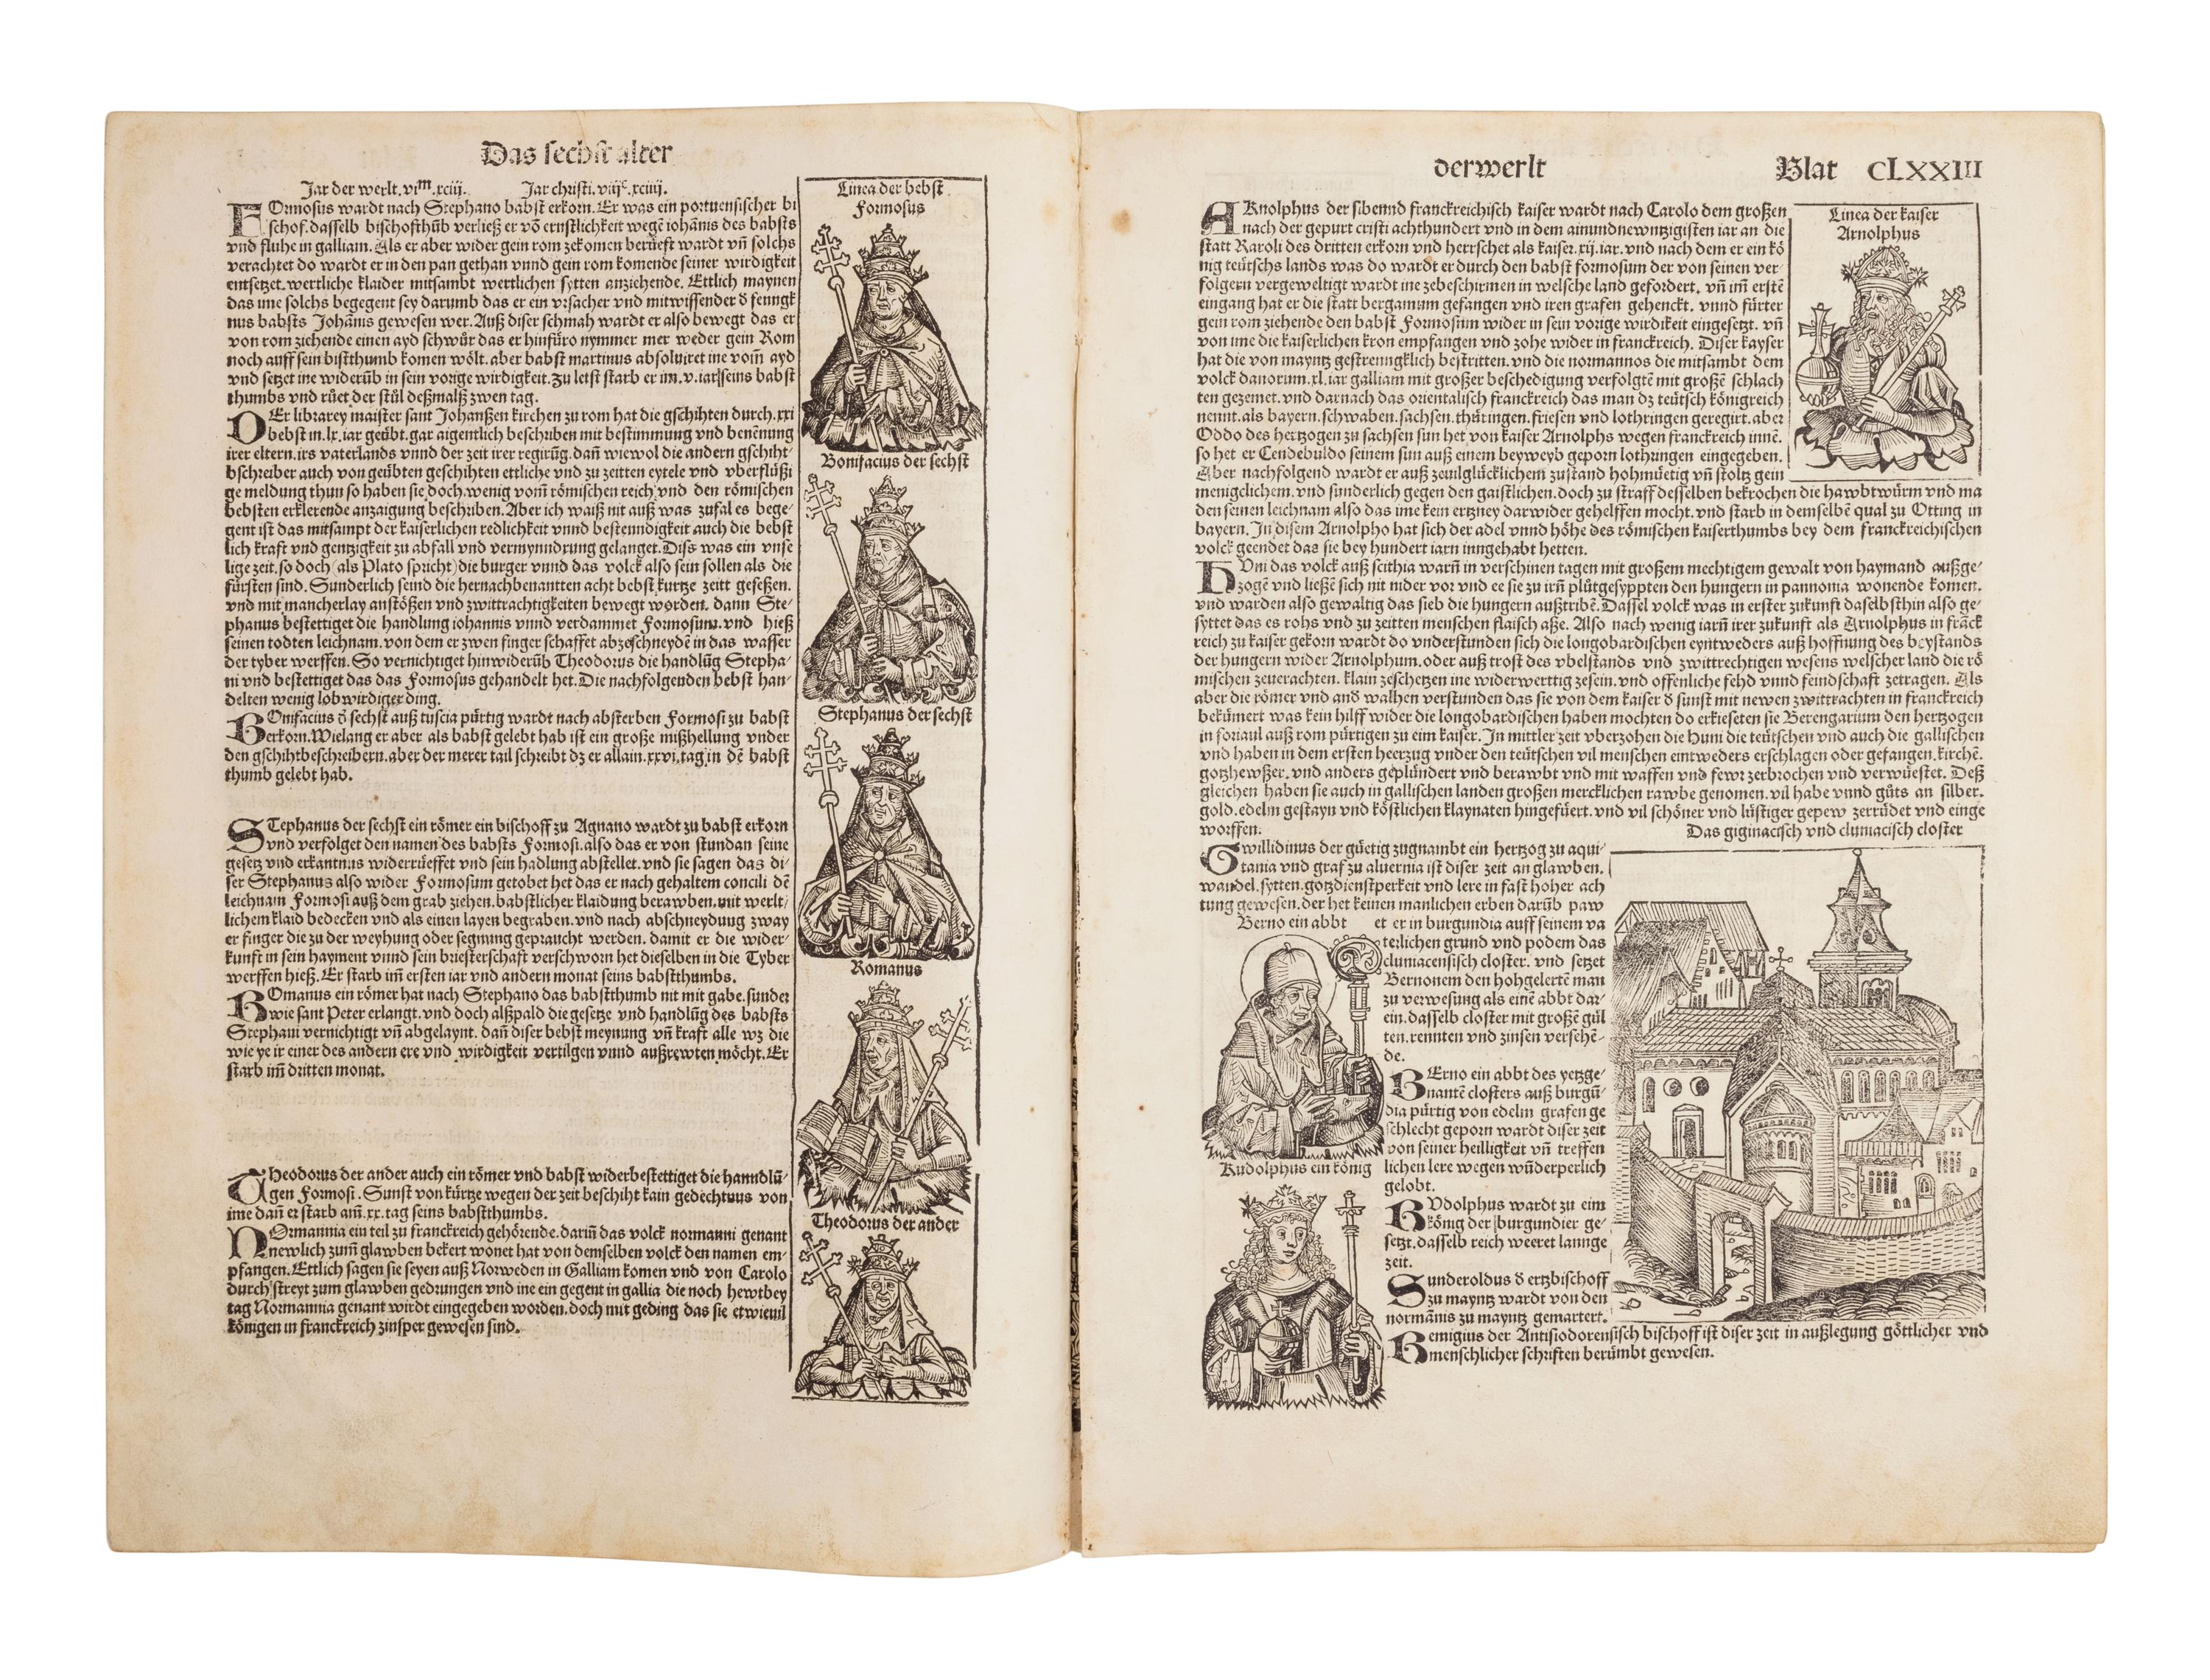 Das sechst alter
Jar der werlt.vi^m.xciij. Jar christi.viij^c.xciiij.
FOrmosus wardt nach Stephano babst erkorn.Er was ein portuensischer bi
schof.dasselb bischofthũb verließ er võ ernstlichkeit wegẽ iohãnis des babsts
vnd fluhe in galliam.Als er aber wider gein rom zekomen berüefft wardt vñ solchs
verachtet do wardt er in den pan gethan vnnd gein rom komende seiner wirdigkeit
entsetzet.wertliche klaider mitsambt wertlichen sytten anziehende. Ettlich maynen
das ime solchs begegent sey darumb das er ein vrsacher vnd mitwissender d̕ fenngk
nus babsts Johãnis gewesen wer.Auß diser schmah wardt er also bewegt das er
von rom ziehende einen ayd schwůr das er hinfüro nymmer mer weder gein Rom
noch auff sein bistthumb komen wölt.aber babst martinus absoluiret ine voñ ayd
vnd setzet ine widerũb in sein vorige wirdigkeit.Zu letst starb er im.v.iar seins babst
thumbs vnd rüet der stůl deßmalß zwen tag.
DEr librarey maister sant Johanßen kirchen zu rom hat die gschihten durch.xxi
bebst in.lx.iar geübt.gar aigentlich beschriben mit bestimmung vnd benẽnung
irer eltern.irs vaterlands vnnd der zeit irer regirũg.dañ wiewol die andern gschiht-
bschreiber auch von geübten geschihten ettliche vnd zu zeitten eytele vnd vberflüßi
ge meldung thun so haben sie doch wenig vom̃ römischen reich vnd den römischen
bebsten erklerende anzaigung beschriben.Aber ich waiß nit auß was zufal es bege-
gent ist das mitsampt der kaiserlichen redlichkeit vnnd bestenndigkeit auch die bebst
lich kraft vnd gentzigkeit zu abfall vnd vermynndrung gelanget.Diss was ein vnse
lige zeit.so doch (als Plato spricht) die burger vnnd das volck also sein sollen als die
fürsten sind.Sunderlich seind die hernachbenantten acht bebst kurtze zeitt gesessen.
vnd mit mancherlay anstößen vnd zwittrachtigkeiten bewegt worden. dann Ste-
phanus bestettiget die handlung iohannis vnnd verdammet Formosum.vnd hieß
seinen todten leichnam.von dem er zwen finger schaffet abzeschneydẽ in das wasser
der tyber werffen.So vernichtiget hinwiderũb Theodorus die handlũg Stepha-
ni vnd bestettiget das das Formosus gehandelt het.Die nachfolgenden bebst han-
delten wenig lobwirdiger ding.
BOnifacius d̕ sechst auß tuscia pürtig wardt nach absterben Formosi zu babst
erkorn.Wielang er aber als babst gelebt hab ist ein große mißhellung vnder
den gschihtbeschreibern.aber der merer tail schreibt dz er allain.xxvi.tag in dẽ babst
thumb gelebt hab.
STephanus der sechst ein römer ein bischoff zu Agnano wardt zu babst erkorn
vnd verfolget den namen des babsts Formosi.also das er von stundan seine
gesetz vnd erkantnus widerrüeffet vnd sein hadlung abstellet.vnd sie sagen das di-
ser Stephanus also wider Formosum getobet het das er nach gehaltem concili dẽ
leichnam Formosi auß dem grab ziehen.babstlicher klaidung berawben.mit werlt/
lichem klaid bedecken vnd als einen layen begraben.vnd nach abschneydung zway
er finger die zu der weyhung oder segnung gepraucht werden. damit er die wider-
kunft in sein hayment vnnd sein briesterschaft verschworn het dieselben in die Tyber
werffen hieß.Er starb im̃ ersten iar vnd andern monat seins babstthumbs.
ROmanus ein römer hat nach Stephano das babstthumb nit mit gabe.sunder
wie sant Peter erlangt.vnd doch alßpald die gesetze vnd handlũg des babsts
Stephani vernichtigt vñ abgelaynt. dañ diser bebst meynung vñ kraft alle wz die
wie ye ir einer des andern ere vnd wirdigkeit vertilgen vnnd außrewten möcht.Er
starb im̃ dritten monat.
THeodorus der ander auch ein römer vnd babst widerbestettiget die hanndlũ-
gen Formosi.Sunst von kürtze wegen der zeit beschiht kain gedechtnus von
ime dañ er starb am̃.xx.tag seins babstthumbs.
NOrmannia ein teil zu franckreich gehörende.darin̄ das volck normanni genant
newlich zum̃ glawben bekert wonet hat von demselben volck den namen em-
pfangen.Ettlich sagen sie seyen auß Norweden in Galliam komen vnd von Carolo
durch streyt zum glawben gedrungen vnd ine ein gegent in gallia die noch hewtbey
tag Normannia genant wirdt eingegeben worden.doch mit geding das sie etwieuil
königen in franckreich zinsper gewesen sind.
Linea der bebst
Formosus
Bonifacius der sechst
Stephanus der sechst
Romanus
Theodorus der ander
der werlt Blat CLXXIII
ARnolphus der sibennd franckreichisch kaiser wardt nach Carolo dem großen
nach der gepurt cristi achthundert vnd in dem ainundnewntzigisten iar an die
statt Karoli des dritten erkorn vnd herrschet als kaiser.xij.iar.vnd nach dem er ein kö
nig teütschs lands was do wardt er durch den babst formosum der von seinen ver-
folgern vergeweltigt wardt ine zebeschirmen in welsche land gefordert. vñ im̃ erstẽ
eingang hat er die statt bergamum gefangen vnd iren grafen gehenckt. vnnd fürter
gein rom ziehende den babst Formosum wider in sein vorige wirdikeit eingesetzt. vñ
von ime die kaiserlichen kron empfangen vnd zohe wider in franckreich. Diser kayser
hat die von mayntz gestrenngklich bestritten.vnd die normannos die mitsambt dem
volck danorum.xl.iar galliam mit großer beschedigung verfolgtẽ mit großẽ schlach
ten gezemet.vnd darnach das orientalisch franckreich das man dz teütsch königreich
nennt.als bayern.schwaben.sachsen.thüringen.friesen vnd lothringen geregirt.aber
Oddo des hertzogen zu sachsen sun het von kaiser Arnolphs wegen franckreich innẽ.
so het er Cendebuldo seinem sun auß einem beyweyb geporn lothringen eingegeben.
Aber nachfolgend wardt er auß zeuilglücklichem zustand hohmüetig vñ stoltz gein
menigclichem.vnd sunderlich gegen den gaistlichen.doch zu straff desselben bekrochen die hawbtwürm vnd ma
den seinen leichnam also das ime kein ertzney darwider gehelffen mocht.vnd starb in demselbẽ qual zu Otting in
bayern.In disem Arnolpho hat sich der adel vnnd höhe des römischen kaiserthumbs bey dem franckreichischen
volck geendet das sie bey hundert iarn inngehabt hetten.
HVni das volck auß scithia warñ in verschinen tagen mit großem mechtigem gewalt von haymand außge-
zogẽ vnd ließẽ sich nit nider vor vnd ee sie zu irñ plůtgesyppten den hungern in pannonia wonende komen.
vnd warden also gewaltig das sieb die hungern außtribẽ.Dassel volck was in erster zukunft daselbsthin also ge-
syttet das es rohs vnd zu zeitten menschen flaisch aße. Also nach wenig iarñ irer zukunft als Arnolphus in franck
reich zu kaiser gekorn wardt do vnderstunden sich die longobardischen eyntweders auß hoffnung des beystands
der hungern wider Arnolphum.oder auß trost des vbelstands vnd zwittrechtigen wesens welscher land die rö
mischen zeuerachten. klain zeschetzen ine widerwerttig zesein.vnd offenliche fehd vnnd feindschaft zetragen. Als
aber die römer vnd and̕ walhen verstunden das sie von dem kaiser d̕ sunst mit newen zwittrachten in franckreich
bekümert was kein hilff wider die longobardischen haben mochten do erkieseten sie Berengarium den hertzogen
in foriaul auß rom pürtigen zu eim kaiser.In mittler zeit vberzohen die Huni die teütschen vnd auch die gallischen
vnd haben in dem ersten heerzug vnder den teütschen vil menschen eintweders erschlagen oder gefangen.kirchẽ.
gotzhewßer.vnd anders geplündert vnd berawbt vnd mit waffen vnd fewr zerbrochen vnd verwüestet. Deß
gleichen haben sie auch in gallischen landen großen mercklichen rawbe genomen.vil habe vnnd gůts an silber.
gold.edelm gestayn vnd köstlichen klaynaten hingefüert.vnd vil schöner vnd lüstiger gepew zerrüdet vnd einge
worffen.
Linea der kaiser
Arnolphus
Das giginacisch vnd cluniacisch closter
Gwillidinus der güetig zugnambt ein hertzog zu aqui-
tania vnd graf zu aluernia ist diser zeit an glawben.
wandel.sytten.gotzdienstperkeit vnd lere in fast hoher ach
tung gewesen.der het keinen manlichen erben darũb paw
et er in burgundia auff seinem va
terlichen grund vnd podem das
cluniacensisch closter. vnd setzet
Bernonem den hohgelertẽ man
zu verwesung als einẽ abbt dar-
ein.dasselb closter mit großẽ gül
ten.rennten vnd zinsen versehẽ-
de.
Berno ein abbt
BErno ein abbt des yetzge-
nantẽ closters auß burgũ-
dia pürtig von edelm grafen ge
schlecht geporn wardt diser zeit
von seiner heilligkeit vñ treffen
lichen lere wegen wũderperlich
gelobt.
Rudolphus ein könig
RVdolphus wardt zu eim
könig der burgundier ge-
setzt.dasselb reich weeret lannge
zeit.
Sunderoldus d̕ ertzbischoff
zu mayntz wardt von den
normãnis zu mayntz gemartert.
Remigius der Antisiodorensisch bischoff ist diser zeit in außlegung göttlicher vnd
menschlicher schriften berümbt gewesen.